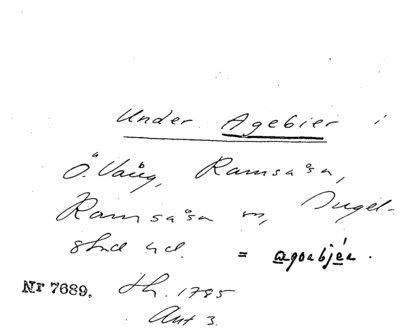 Under Agebier i
Ö. Vång, Ramsåsa,
Ramsåsa sn, Ingel-
stad hd. = agoabjéa.
Nr 7689. Lh. 1785
Akt 3.